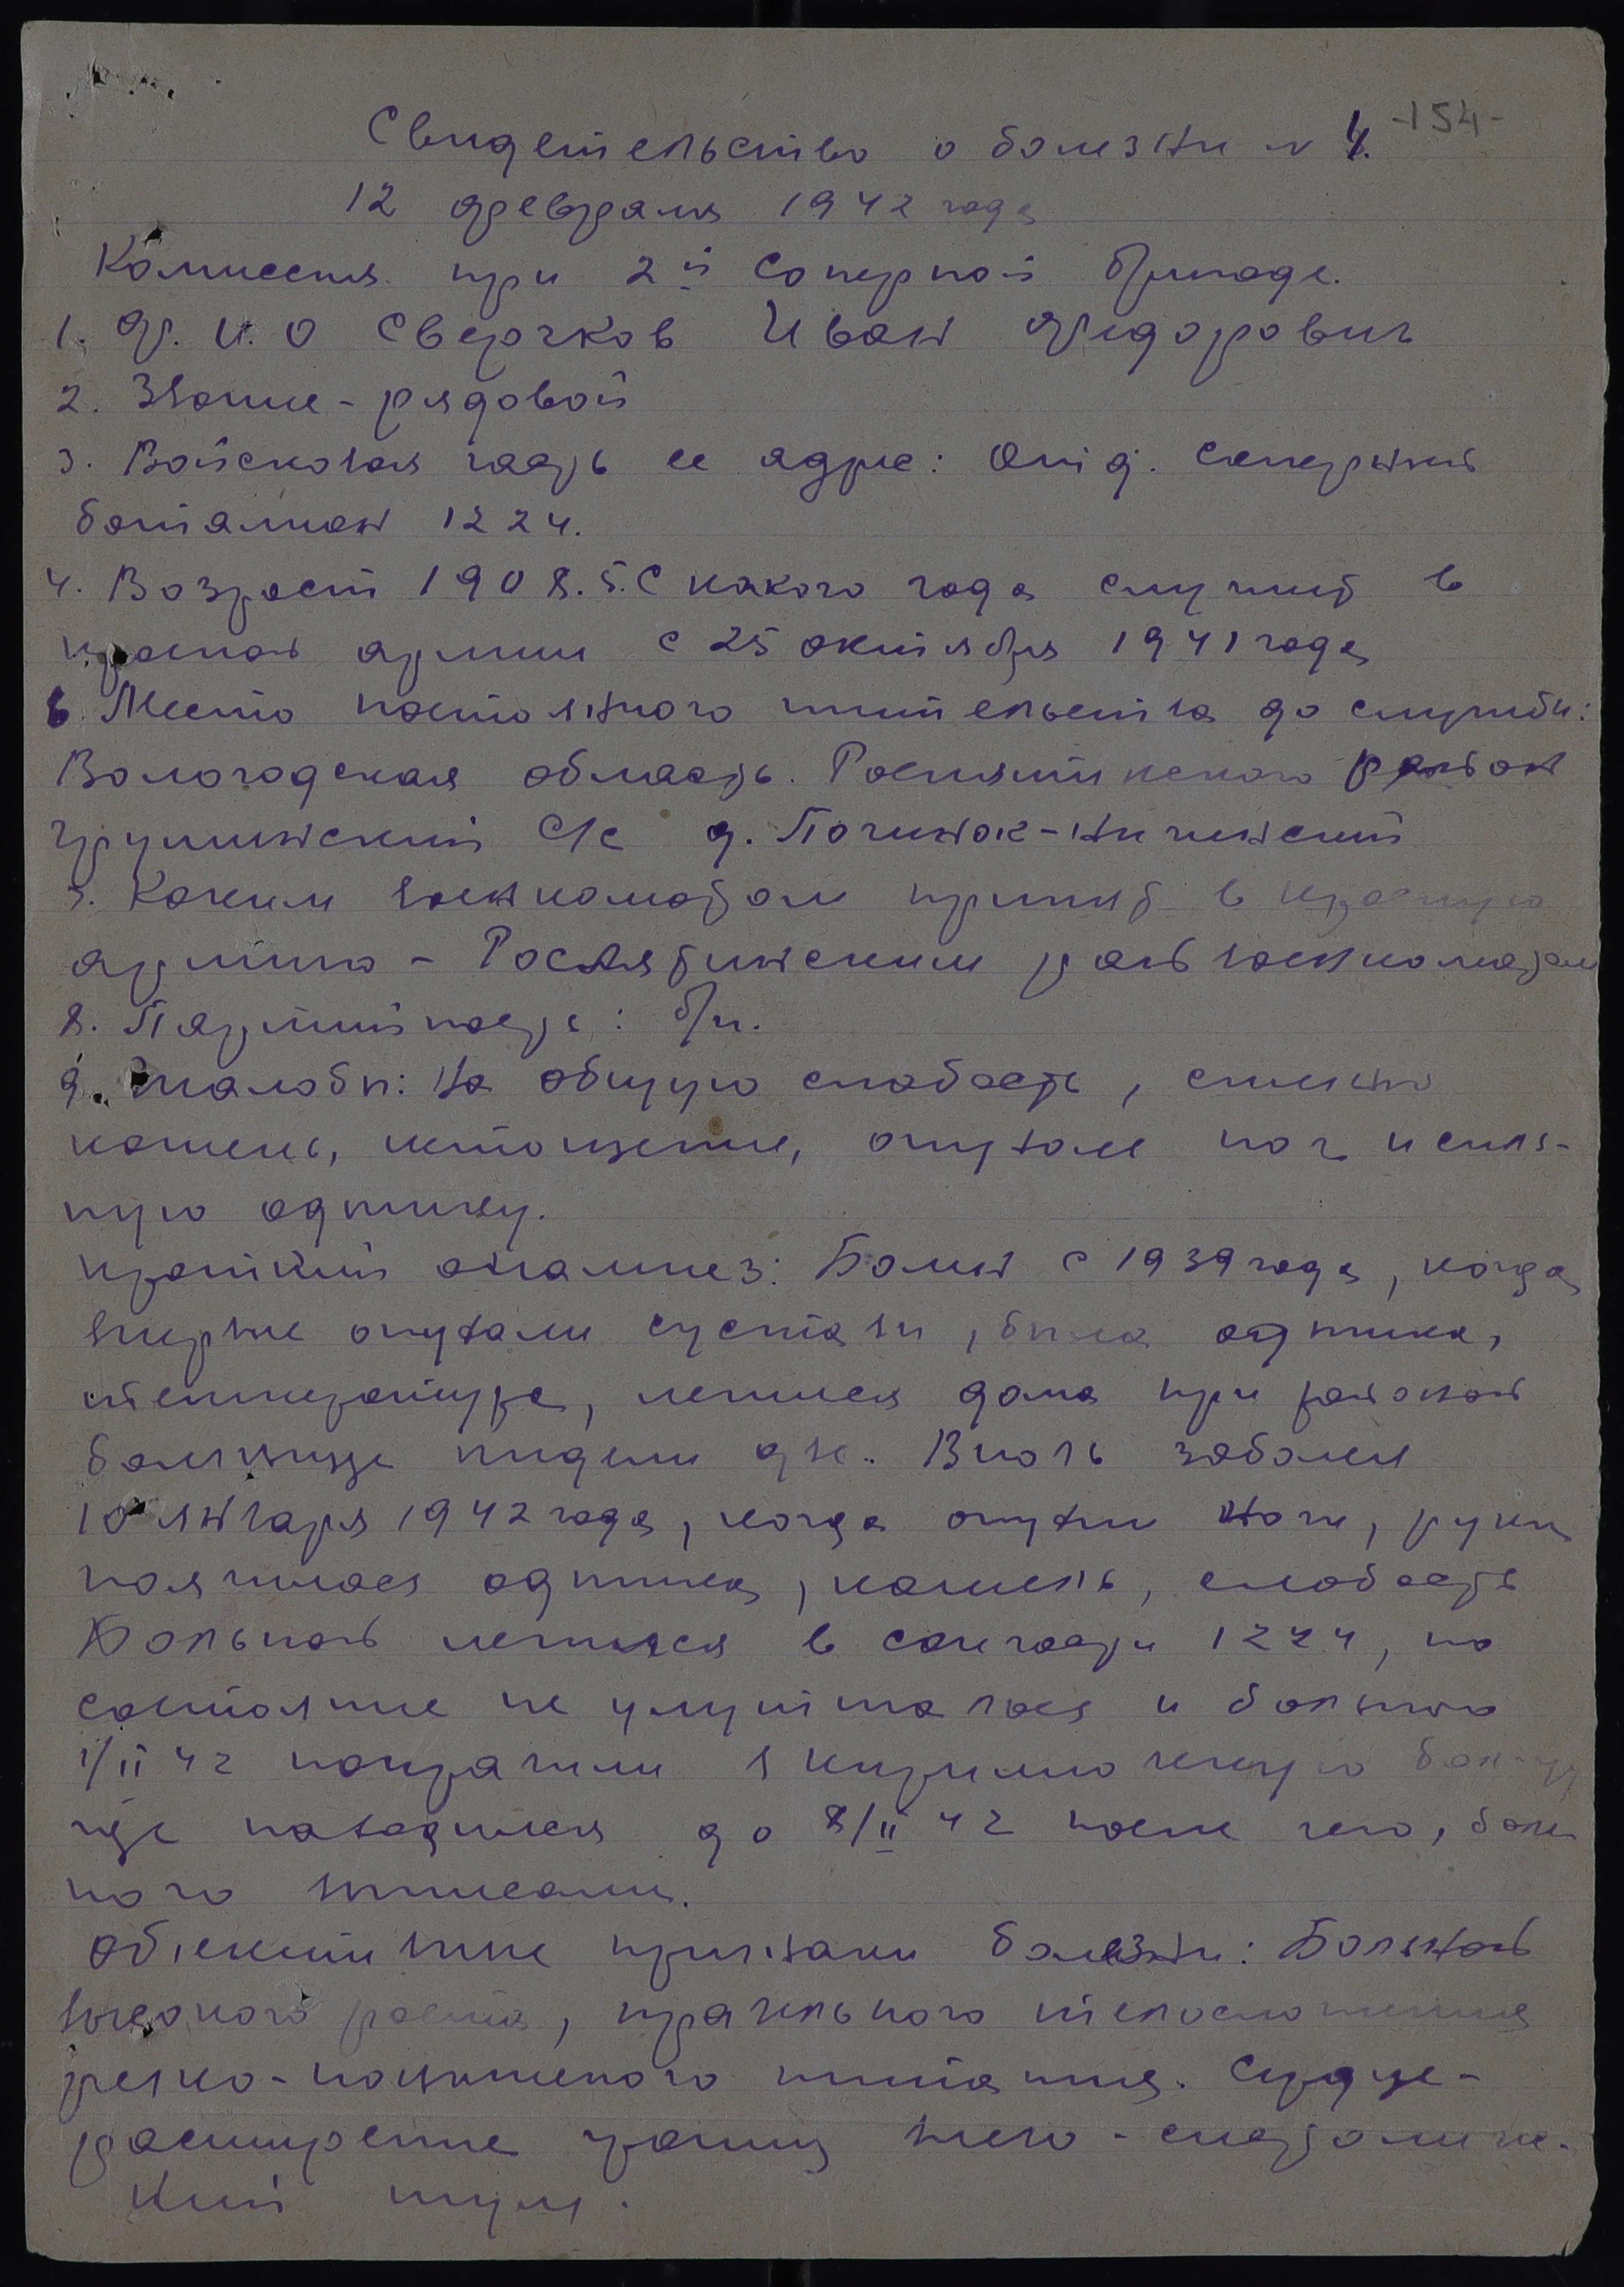 -154-
Свидетельство о болезни N 4.
12 февраля 1942 года
Комиссия при 2й саперной бригаде.
1. Ф. И. О Сверчков Иван Федорович
2. Звание - рядовой
3. Войсковая часть ее адрес: Отд. саперный
баталион 1224.
4. Возраст 1908. 5. С какого года служит в
красной армии с 25 октября 1941 года
6. Место постоянного жительства до службы:
Вологодская область. Рослятинского район
с/с д. Починок-
7. Каким военкоматом принят в красную
армию - Рослятинским рай военкоматом
8. Партийность: б/п.
9. Жалобы: На общую слабость, сильно
кашель, истощение, опухание ног и силь-
ную одышку.
краткий анамнез: Болен с 1939 года, когда
впервые опухали суставы, была одышка,
температура, лечился дома при районой
больнице недели две. Вновь заболел
10 января 1942 года, когда опухли ноги, руки
появилася одышка, кашель, слабость
Больной лечился в санчасти 1224, но
состояние не улучшталося и больного
1/II 42 направили в кирилловскую
где находился до 8/II 42 после чего, боль
ного выписали.
Объективные признаки болезни: Больной
высокого роста, правельного телосложения
резко-пониженого питания. Сердце-
расширение границ влево - систоличе-
кий шум.